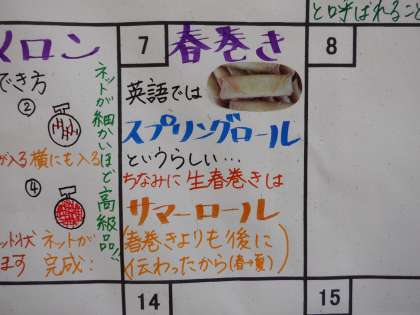 と呼ばれること
メロン
でき方
②
が入る横にも入る
④
ット状 ネットが
ます 完成!
ネットが細かいほど高級品!!
7
春巻き
英語では
スプリングロール
というらしい…
ちなみに生春巻きは
サマーロール
(春巻きよりも後に
伝わったから(春→夏))
8
14
15